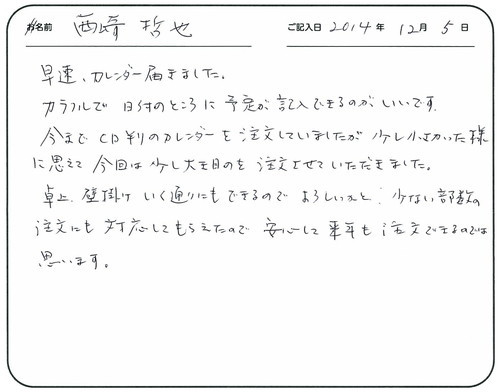 お名前 西崎 哲也 ご記入日 2014年 12月 5日
早速、カレンダー届きました。
カラフルで 日付のところに 予定が 記入できるのが いいです。
今まで CD判のカレンダーを 注文していましたが 少し小さかった様
に思えて 今回は 少し大き目のを 注文させていただきました。
卓上、壁掛け いく通りにも できるので よろしいかと! 少ない部数の
注文にも 対応してもらえたので 安心して 来年も 注文できるのでは
思います。